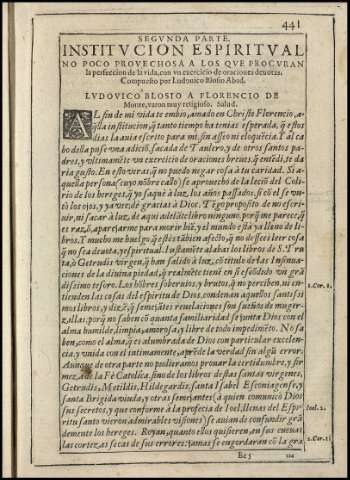 441
SEGVNDA PARTE.
INSTITVCION ESPIRITVAL
NO POCO PROVECHOSA A LOS QVE PROCVRAN
la perfeccion de la vida, con vn exercicio de oraciones deuotas.
Compuesto por Ludouico Blosio Abad.
LVDOVICO BLOSIO A FLORENCIO DE
Monte, varon muy religioso. Salud.
AL fin de mi vida te embio, amado en Christo Florencio, a-
q̃lla institucion, q̃ tanto tiempo ha tenias esperada, q̃ estos
dias la auia escrito para mi, sin asseo ni eloquẽcia. Tal ca
bo della puse vna adiciõ, sacada de Taulero, y de otros santos pa-
dres, y vltimamẽte vn exercicio de oraciones breues, q̃ entẽdi, te da
ria gusto. En esto veras, q̃ no puedo negar cosa à tu caridad. Si a-
quella persona se aprouecho de la leciõ del Coli-
rio de los hereges, q̃ yo saquè à luz, los años passados, si cõ el se vn-
tò los ojos, y ya vee, de gracias à Dios. Tẽgo proposito de no escri-
uir, ni sacar à luz, de aqui adelãte libro ninguno, porq̃ me parece, q̃
es razõ, aparejarme para morir biẽ, y el mundo està ya lleno de li-
bros. Y mucho me huelgo, q̃
no sea deuota, y espiritual. Iustamẽte alabas los libros de S. Tru
ta, ò Getrudis virgen, q̃ han salido à luz, cõ titulo de las Insinua-
ciones de la diuina piedad, q̃ realmẽte tienẽ en si escõdido vn grã
dissimo tesoro. Los hõbres soberuios, y brutos, q̃ no perciben, ni en-
tienden las cosas del espiritu de Dios, condenan aquellos santissi
mos libros, y dizẽ, q̃ semejãtes reuelaciones son sueños de muger-
zillas: porq̃ no saben cõ quanta familiaridad se junta Dios con el
alma humilde, limpia, amorosa, y libre de todo impedimẽto. No sa
ben, como el alma, q̃ es alumbrada de Dios con particular excelen-
cia, y vnida con el intimamente, aprẽde la verdad sin algũ error.
Aunque de otra parte no pudieramos prouar la certidumbre, y fir-
meza de la Fè Catolica, sino de los libros de estas santas virgenes,
Getrudis, Metildis, Hildegardis, santa Isabel Esconaugense, y
santa Brigida viuda, y otras semejantes (à quien comunicò Dios
sus secretos, y que conforme à la profecia de Ioel, llenas del Espi-
ritu santo vieron admirables visiones) se auian de confundir grã
demente los hereges. Royan, quanto ellos quisieren, en sus cueuas
las cortezas secas de sus errores: jamas se engordaran cõ la gra
1.Cor.2.
Ioel.2.
2.Cor.11